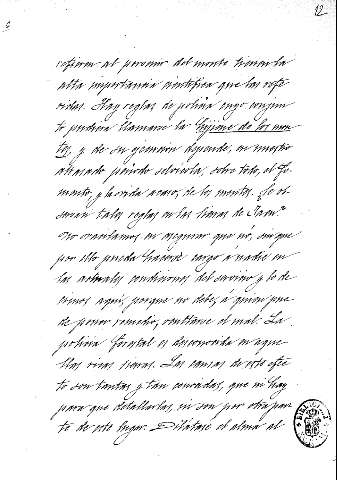 12
refieren al personal del monte tienen la
alta importancia científica que las refe-
ridas. Hay reglas de policía cuyo conjun-
to pudiera llamarse la higiene de los mon-
tes, y de su ejecución depende, en nuestro
atrasado periodo selvícola, sobre todo, el fo-
mento, y la vida acaso, de los montes. ¿Se ob-
servan tales reglas en las tierras de
No vacilamos en asegurar que no, aunque
por ello pueda hacerse cargo a nadie en
las actuales condiciones del servicio y lo de-
cimos aquí, porque no debe, a quien pue-
de poner remedio, ocultarse el mal. La
policía forestal es desconocida en aque-
llas ricas sierras. Las causas de este efec-
to son tantas y tan conocidas, que ni hay
para que detallarlas, ni son por otra par-
te de este lugar. Dilátase el alma al